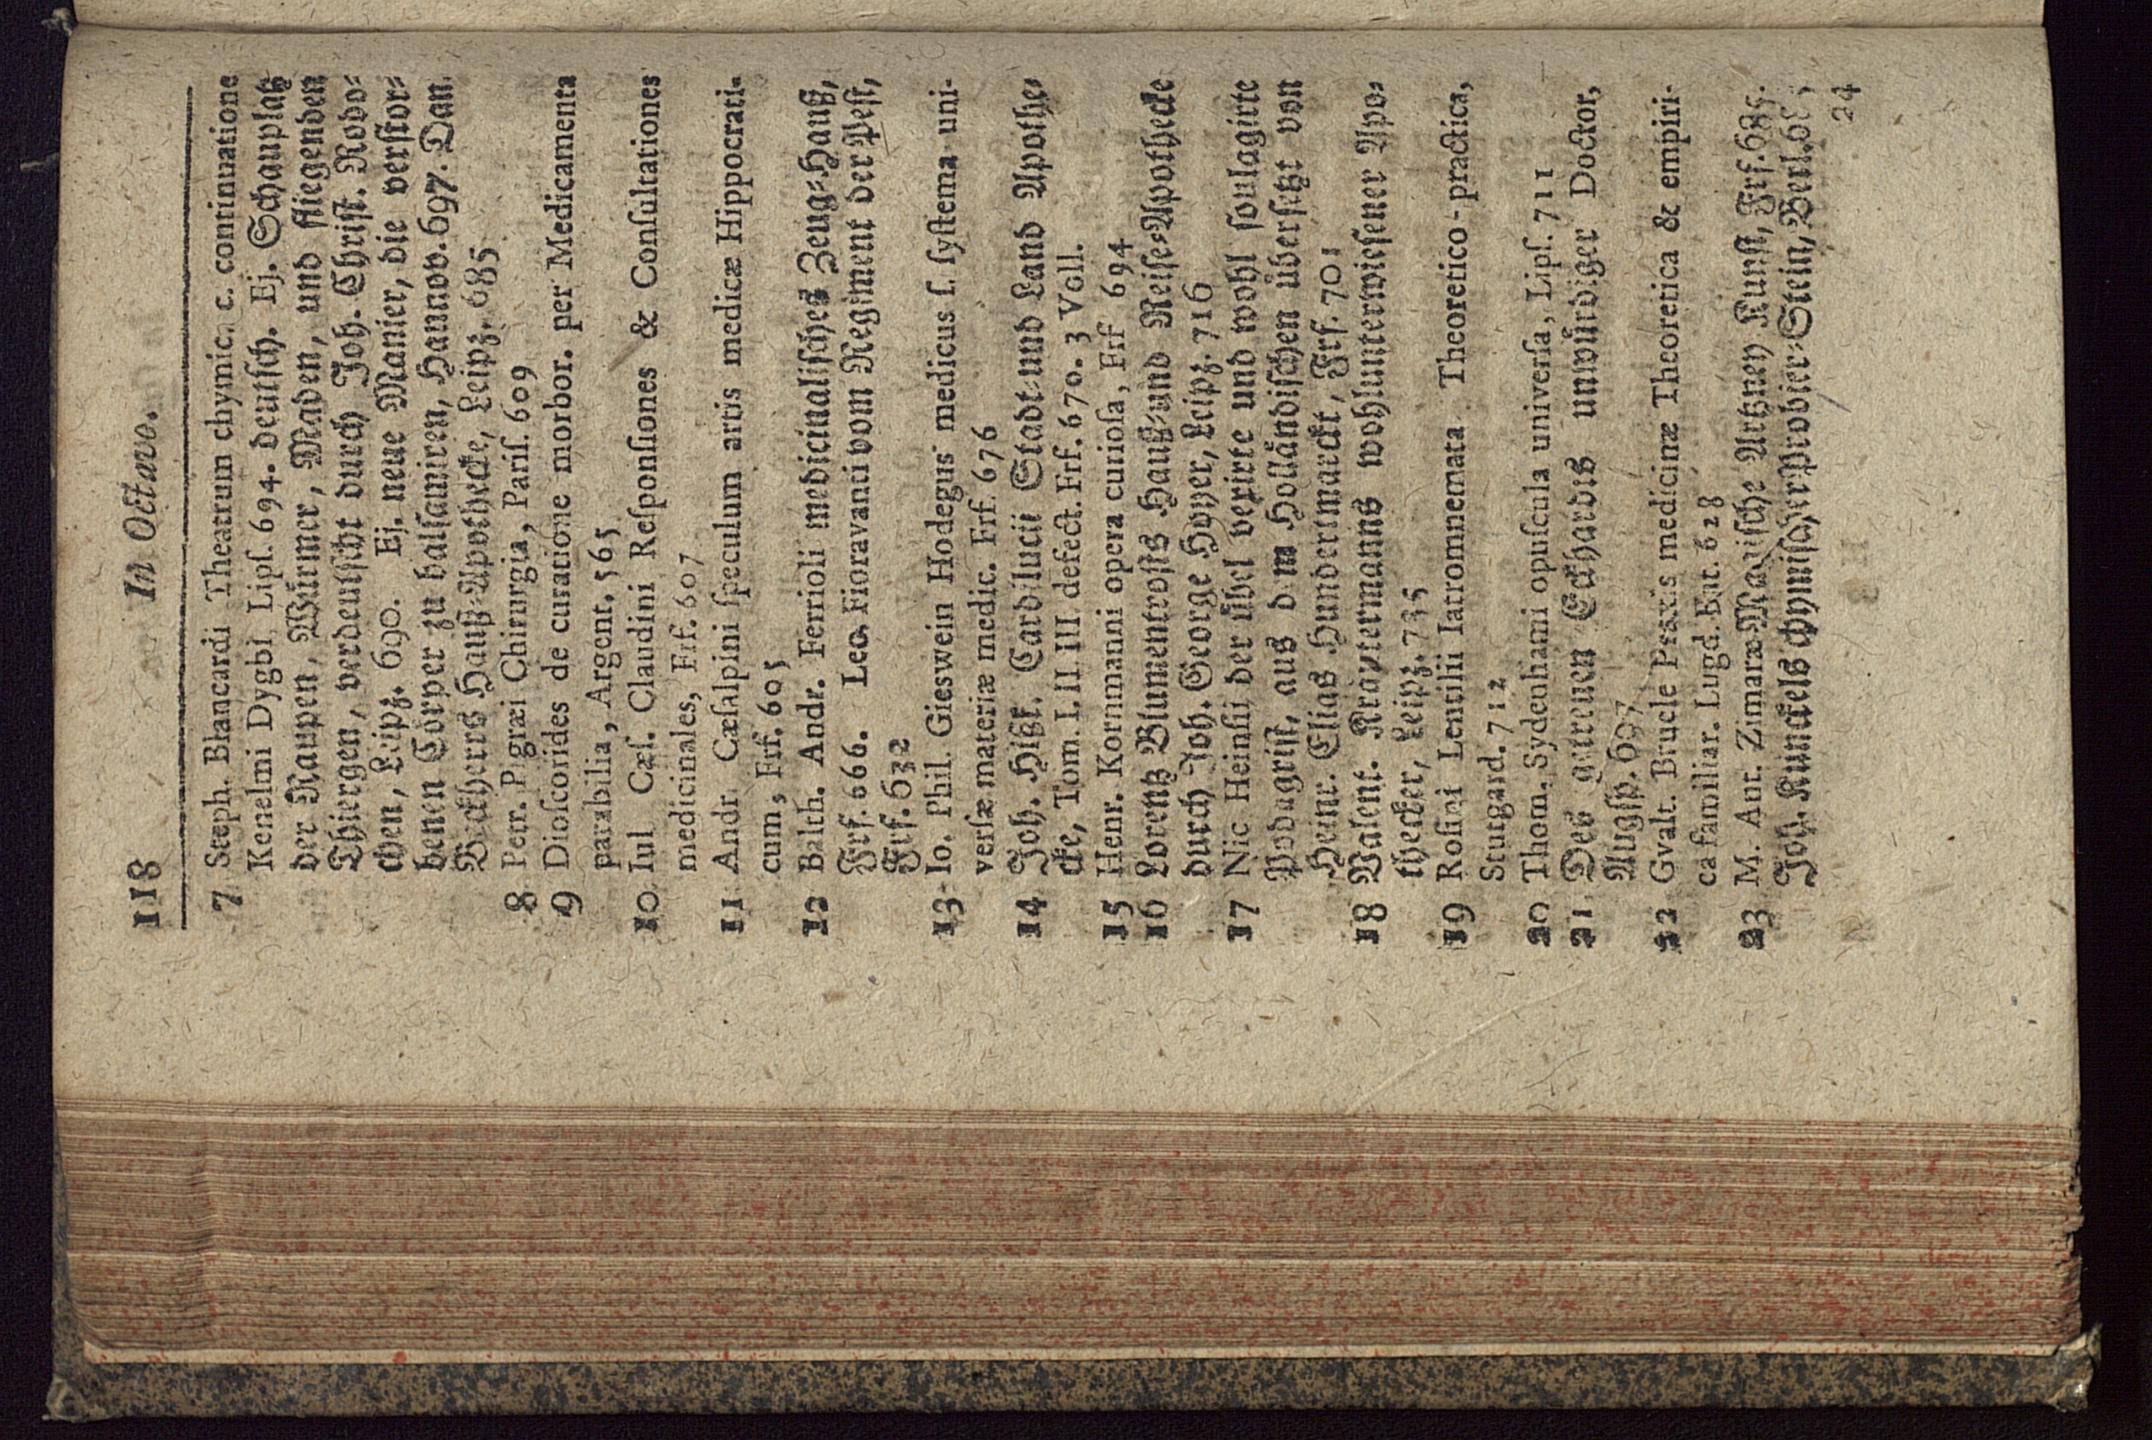 118 In Octavo.
7 Steph. Blancardi Theatrum chymic. c. continuatione
Kenelmi Dygbi, Lipſ. 694. deutſch. Ej. Schauplatz
der Raupen, Würmer, Maden, und fliegenden
Thiergen, verdeutſcht durch Joh. Chriſt. Rodo-
chen, Leipz. 690. Ej. neue Manier, die verſtor-
benen Cörper zu balſamiren, Hannov. 697. Dan.
Beckherrs Hauß-Apothecke, Leipz. 685
8 Petr. Pigræi Chirurgia, Pariſ. 609
9 Dioſcorides de curatione morbor. per Medicamenta
parabilia, Argent. 565
10 Iul Cæſ. Claudini Reſponſiones & Conſultationes
medicinales, Frf. 607
11 Andr. Cæſalpini ſpeculum artis medicæ Hippocrati-
cum, Frf. 605
12 Balth. Andr. Ferrioli medicinaliſches Zeug-Hauß,
Frf. 666. Leo. Fioravanti vom Regiment der Peſt,
Frf. 632
13 Io. Phil. Gieswein Hodegus medicus ſ. ſyſtema uni-
verſæ materiæ medic. Frf. 676
14 Joh. Hißk. Cardilucii Stadt-und Land Apothe-
cke, Tom. I. II III. defect. Frf. 670. 3 Voll.
15 Henr. Kornmanni opera curioſa, Frf 694
16 Lorentz Blumentroſts Hauß-und Reiſe-Apothecke
durch Joh. George Hoyer, Leipz. 716
17 Nic Heinſii der übel vexirte und wohl ſoulagirte
Podagriſt, aus dem Holländiſchen überſetzt von
Heinr. Elias Hundertmarckt, Frf. 701
18 Valent. Kräutermanns wohlunterwieſener Apo-
thecker, Leipz. 735
19 Roſini Lentilii Iatromnemata Theoretico-practica,
Stutgard. 712
20 Thom. Sydenhami opuſcula univerſa, Lipſ. 711
21 Des getreuen Eckhardts unwürdiger Doctor,
Augſp. 697
22 Gvalt. Bruele Praxis medicinæ Theoretica & empiri-
ca familiar. Lugd. Bat. 628
23 M. Ant. Zimaræ Magiſche Artzney Kunſt, Frf. 685.
Joh. Kunckels chymiſcher Probier-Stein, Berl.
24